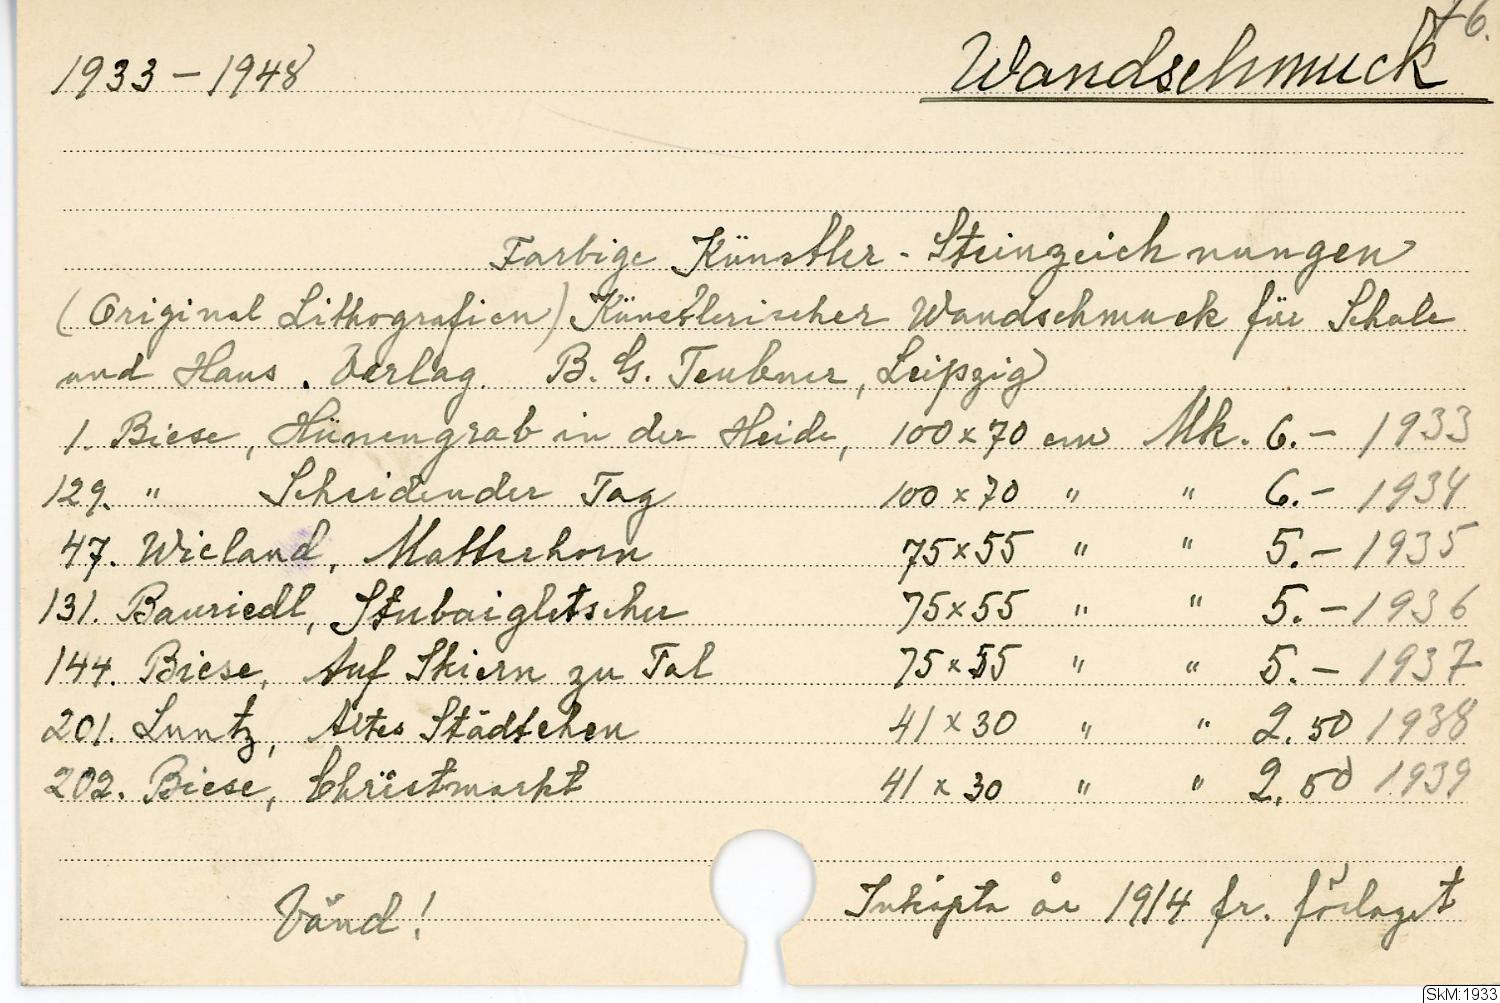 46.
1933 – 1948 Wandschmuck
Farbige Künstler - Steinzeichnungen
(Original Lithografien) Künstlerischer Wandschmuck für Schule
und Haus. Verlag. B. G. Teubner, Leipzig
1. Biese, Hünengrab in der Heide, 100 x 70 cm Mk. 6.- 1933
129. " Scheidender Tag 100 x 70 " " 6.- 1934
47. Wieland, Matterhorn 75 x 55 " " 5.- 1935
131. Bauriedl, Stubaigletscher 75 x 55 " " 5.- 1936
144. Biese, Auf Skiern zu Tal 75 x 55 " " 5.- 1937
201. Luntz, Altes Städtchen 41 x 30 " " 2.50 1938
202. Biese, Christmarkt 41 x 30 " " 2.50 1939
Vänd! Inköpta år 1914 fr. förlaget
SkM:1933